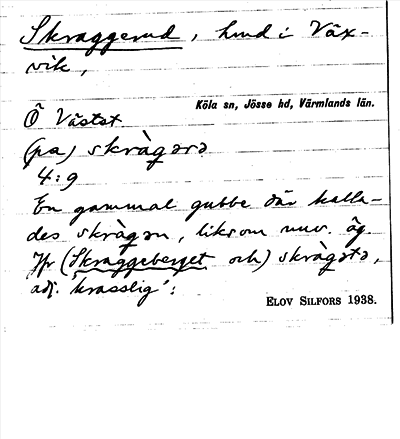 Skraggerud, hmd i Växvik,
Köla sn, Jösse hd, Värmlands län.
Ö Västst
(pa) skràgərə
4:9
En gammal gubbe där kallades
skràgən, liksom nuv. äg.
Jfr (Skraggeberget och) skràgətə,
adj. 'krasslig':
ELOV SILFORS 1938.